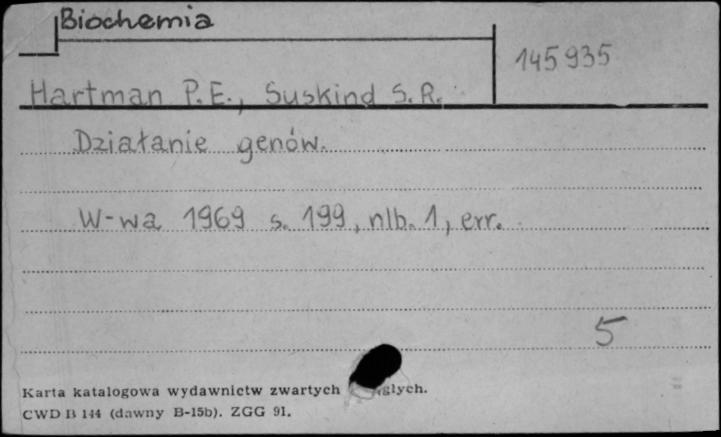 Biochemia
145935
Hartman P.E., Suskind S.R.
Działanie genów.
W-wa 1969 s. 199, nlb. 1, err.
5
Karta katalogowa wydawnictw zwartych
CWD B 144 (dawny B-15b). ZGG 91.